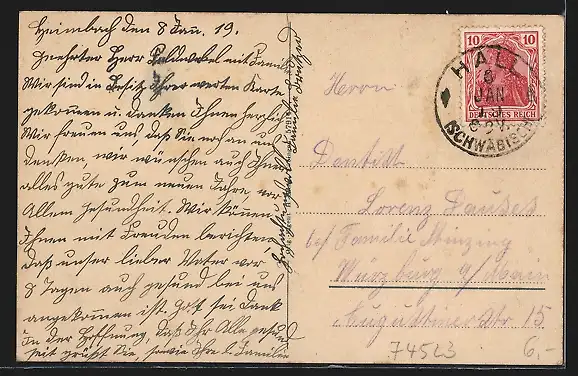 Heimbach den 8 Jan. 19.
Geehrter Herr Feldwebel mit Familie
Wir sind in Besitz Ihrer werten Karte
gekommen u. danken Ihnen herzlich
Wir freuen uns, daß Sie noch an uns
denken, wir wünschen auch Ihnen
alles gute zum neuen Jahre vor
Allem Gesundheit. Wir können
Ihnen mit Freuden berichten,
daß unser lieber Vater vor
8 Tagen auch gesund bei uns
angekommen ist. Gott sei Dank
In der Hoffnung, daß Ihr Alle gesund
seit grüßt Sie, sowie Ihre l. Familie
10 10
DEUTSCHES REICH
HALL
8
JAN
(SCHWÄBISCH)
Herrn
Dentist
Lorenz
bei Familie
Würzburg a/Main
Augustinerstr 15
74523
6,-